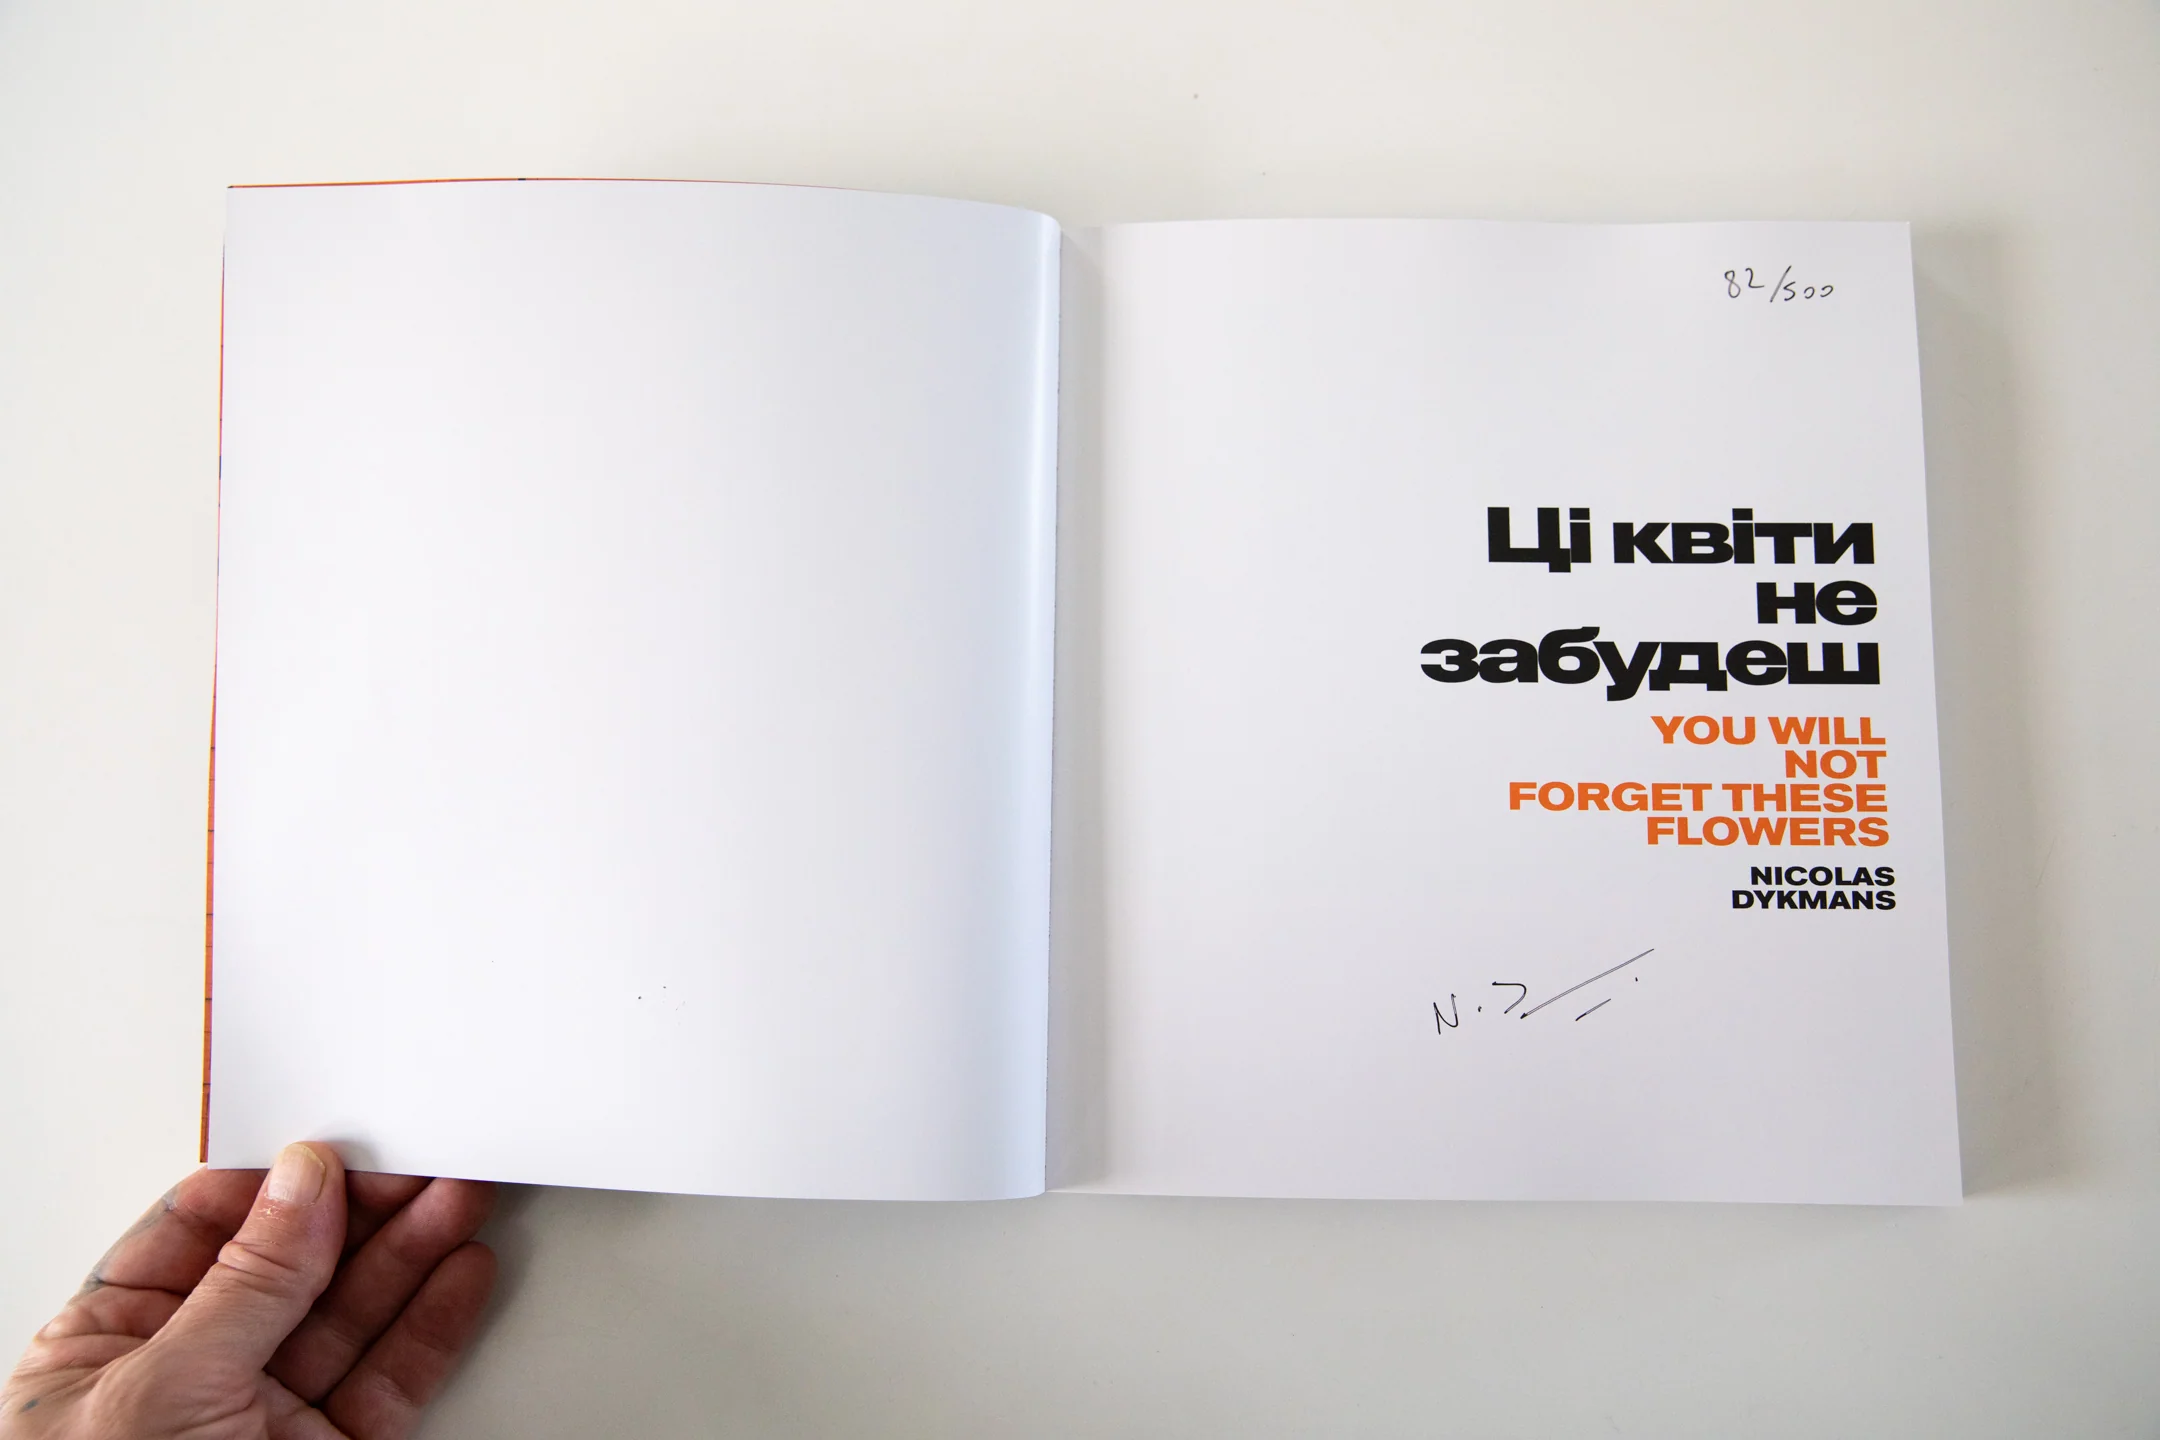 82/500
Ці квіти
не
забудеш
YOU WILL
NOT
FORGET THESE
FLOWERS
NICOLAS
DYKMANS